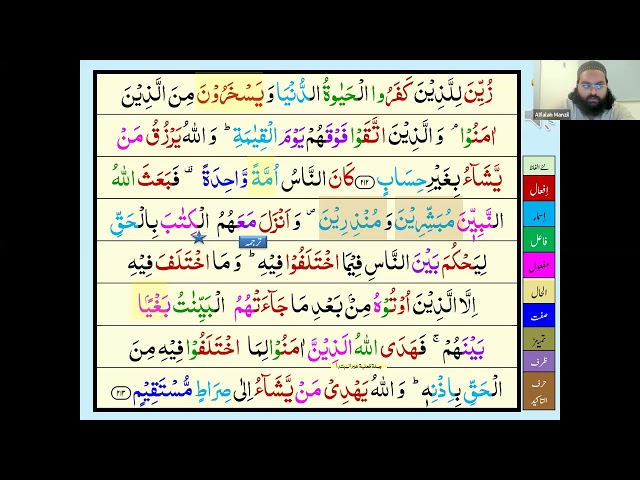 زُيِّنَ لِلَّذِيْنَ كَفَرُوا الْحَيٰوةُ الدُّنْيَا وَ يَسْخَرُوْنَ مِنَ الَّذِيْنَ
اٰمَنُوْا ۘ وَ الَّذِيْنَ اتَّقَوْا فَوْقَهُمْ يَوْمَ الْقِيٰمَةِ ؕ وَ اللّٰهُ يَرْزُقُ مَنْ
يَّشَآءُ بِغَيْرِ حِسَابٍ ﴿۲۱۲﴾ كَانَ النَّاسُ اُمَّةً وَّاحِدَةً ۫ فَبَعَثَ اللّٰهُ
النَّبِيّٖنَ مُبَشِّرِيْنَ وَ مُنْذِرِيْنَ ۪ وَ اَنْزَلَ مَعَهُمُ الْكِتٰبَ بِالْحَقِّ
ترجمہ
لِيَحْكُمَ بَيْنَ النَّاسِ فِيْمَا اخْتَلَفُوْا فِيْهِ ؕ وَ مَا اخْتَلَفَ فِيْهِ
اِلَّا الَّذِيْنَ اُوْتُوْهُ مِنْۢ بَعْدِ مَا جَآءَتْهُمُ الْبَيِّنٰتُ بَغْيًۢا
بَيْنَهُمْ ۚ فَهَدَى اللّٰهُ الَّذِيْنَ اٰمَنُوْا لِمَا اخْتَلَفُوْا فِيْهِ مِنَ
الْحَقِّ بِاِذْنِهٖ ؕ وَ اللّٰهُ يَهْدِيْ مَنْ يَّشَآءُ اِلٰى صِرَاطٍ مُّسْتَقِيْمٍ ﴿۲۱۳﴾
Alfalah Manzil
نئے الفاظ
افعال
اسماء
فاعل
مفعول
الحال
صفت
تمییز
ظرف
حرف التاکید